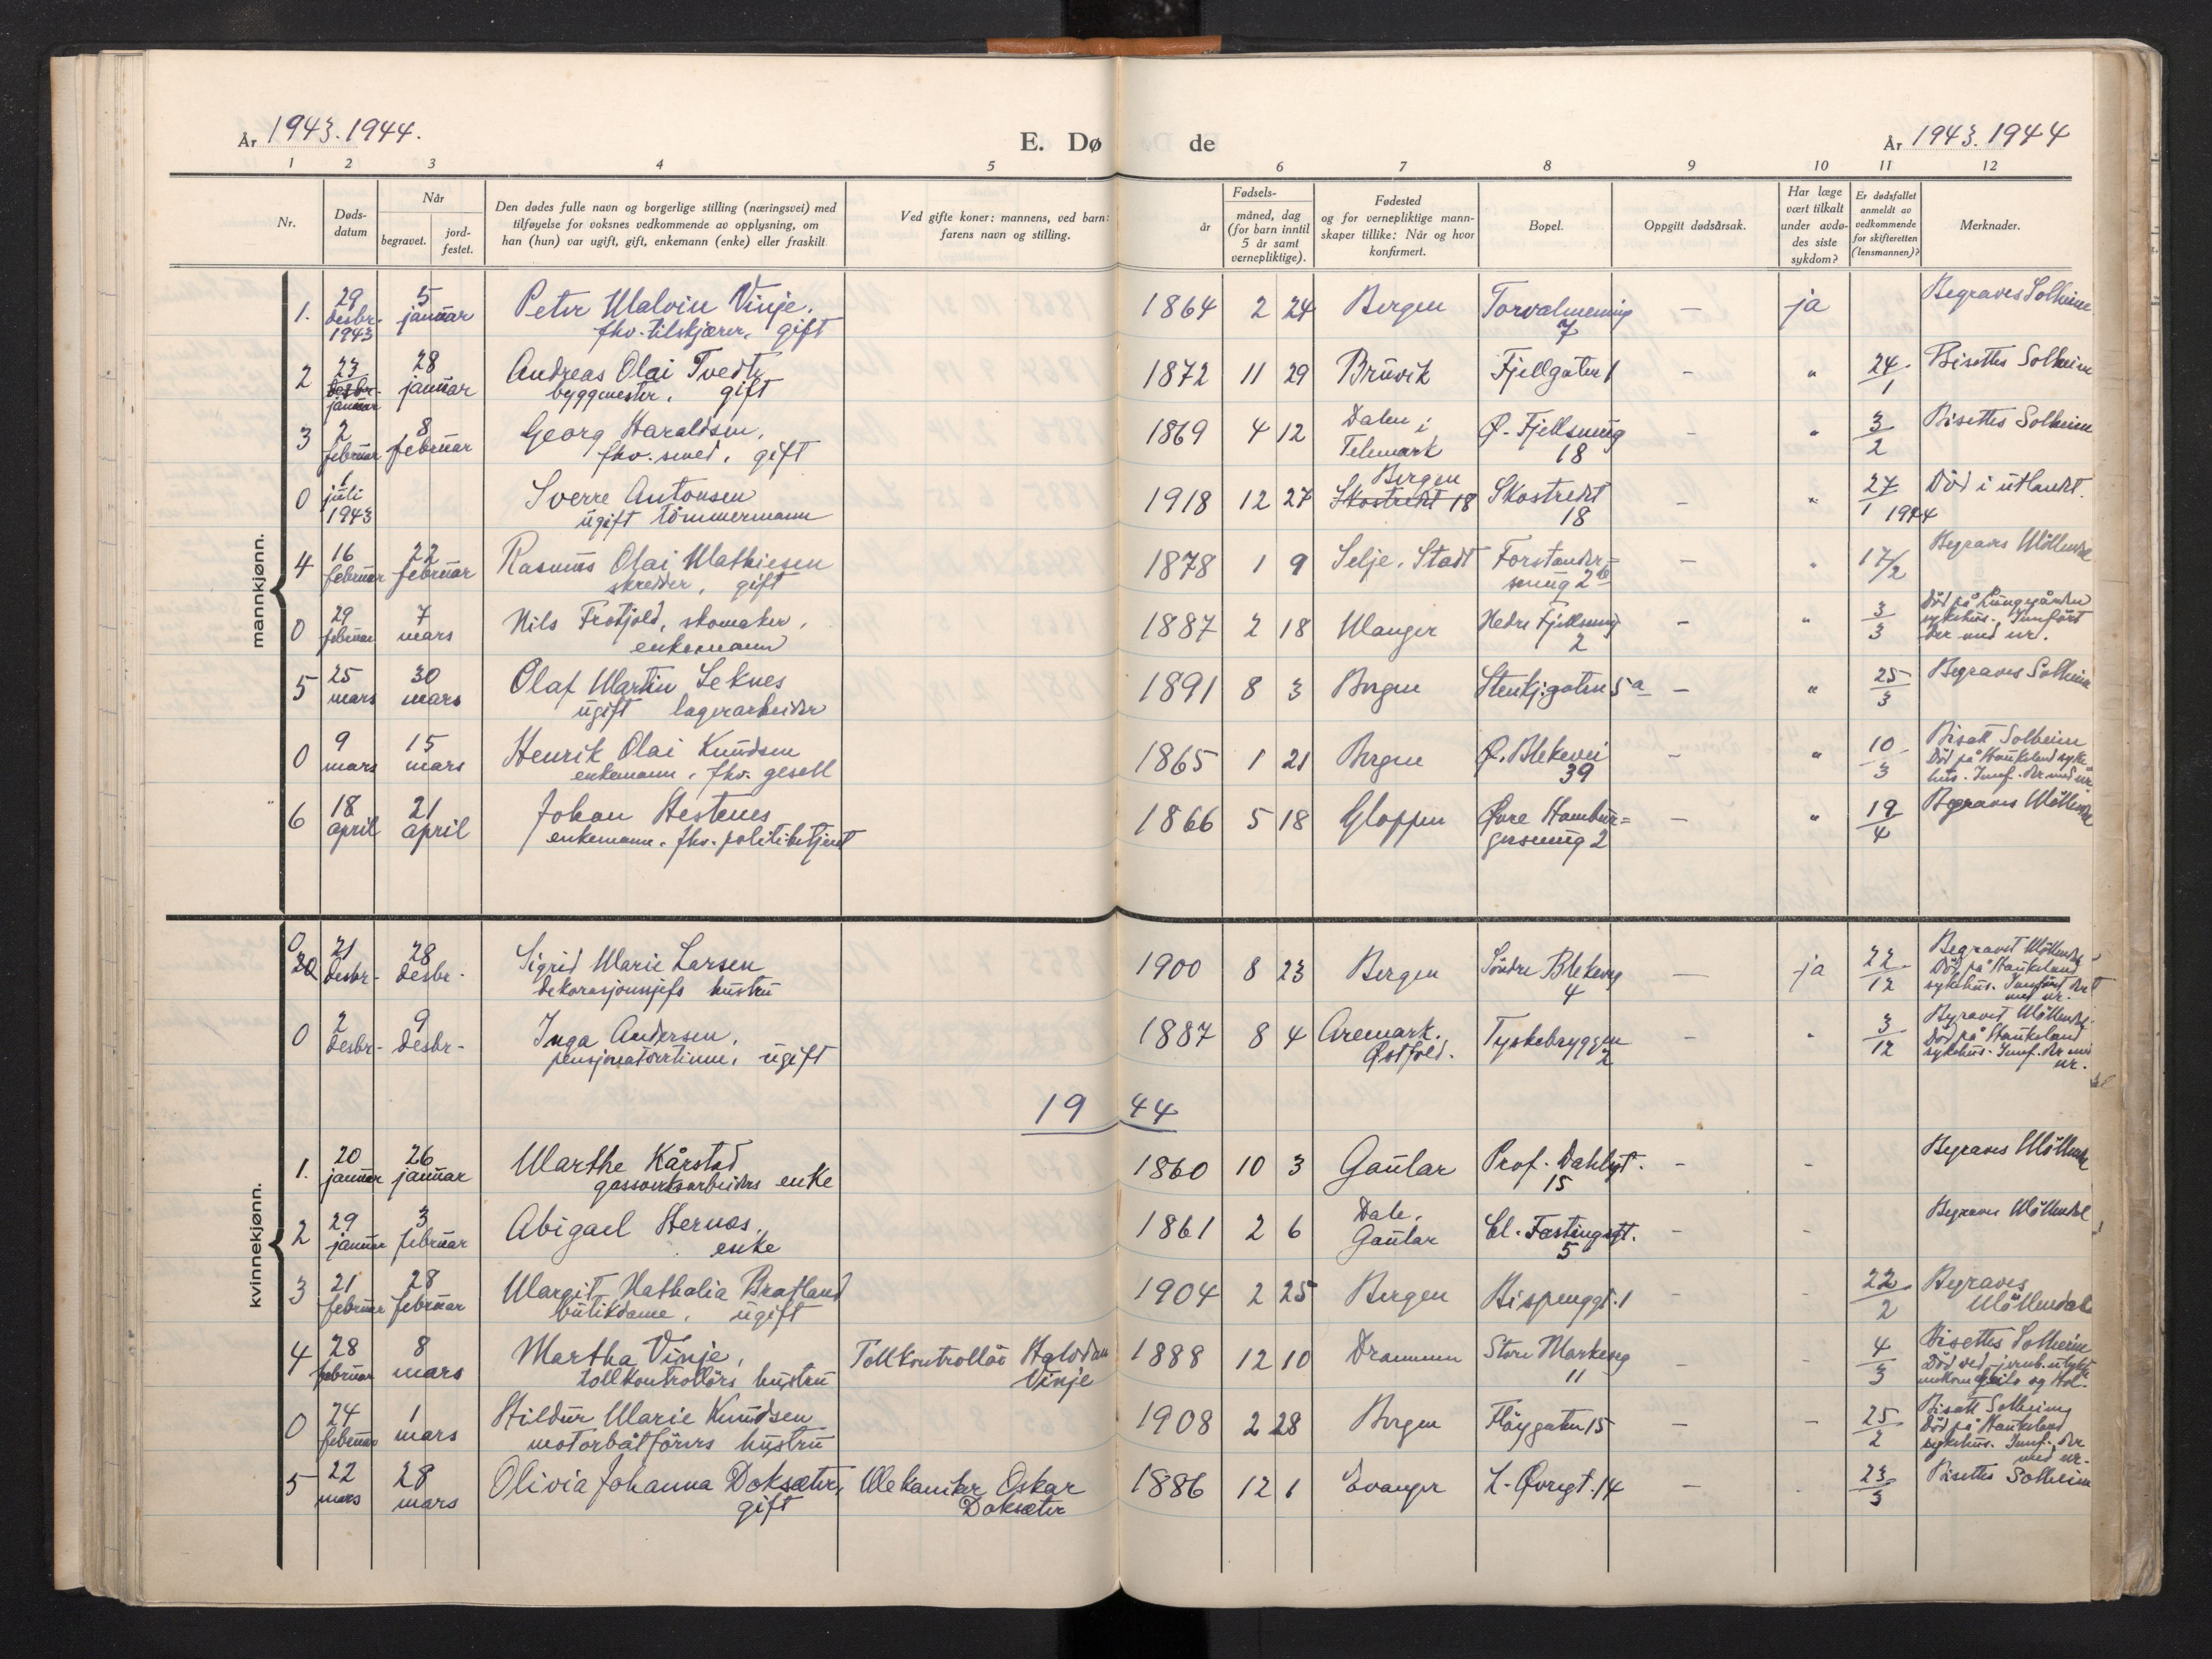 År 1943. 1944.
E. Dø de
År 1943. 1944
1 2 3 4 5 6 7 8 9 10 11 12
Nr.
Døds-
datum
Når
begravet.
jord-
festet.
Den dødes fulle navn og borgerlige stilling (næringsvei) med
tilføyelse for voksnes vedkommende av opplysning, om
han (hun) var ugift, gift, enkemann (enke) eller fraskilt.
Ved gifte koner: mannens, ved barn:
farens navn og stilling.
Fødsels-
år
måned, dag
(for barn inntil
5 år samt
vernepliktige).
Fødested
og for vernepliktige mann-
skaper tillike: Når og hvor
konfirmert.
Bopel.
Oppgitt dødsårsak.
Har læge
vært tilkalt
under avdø-
des siste
sykdom?
Er dødsfallet
anmeldt av
vedkommende
for skifteretten
(lensmannen)?
Merknader.
mannkjønn.
1. 29 desbr. 1943 5 januar Peter Malvin Vinje, 1864 2 24 Bergen Torvalmening 7 — ja Begraves Solheim
fhv. tilskjærer, gift
2 23 desbr. januar 28 januar Andreas Olai Tvedt, 1872 11 29 Bruvik Fjellgaten 1 — " 24/1 Bisettes Solheim
byggmester, gift
3 2 februar 8 februar Georg Haraldsen, 1869 4 12 Dalen i Telemark Ø. Fjellsmug 18 — " 3/2 Bisettes Solheim
fhv. smed, gift
0 1 juli 1943 Sverre Antonsen 1918 12 27 Bergen Skostredet 18 Skostredet 18 — " 27/1 1944 Död i utlandet.
ugift tömmermann
4 16 februar 22 februar Rasmus Olai Mathiesen 1878 1 9 Selje, Stadt Forstander-
smug 2 — " 17/2 Begraves Möllendal
skredder, gift
0 29 februar 7 mars Nils Frotjold, skomaker, 1887 2 18 Manger Nedre Fjellsmug 2 — " 3/3 Död på Lungegården
sykehus. Innfört
der med nr.
enkemann
5 25 mars 30 mars Olaf Martin Seknes 1891 8 3 Bergen Stenkj.gaten 5a — " 25/3 Begraves Solheim
ugift lagerarbeider
0 9 mars 15 mars Henrik Olai Knudsen 1865 1 21 Bergen Ø. Blekevei 39 — " 10/3 Bisatt Solheim
Död på Haukeland syke-
hus. Innf. der med nr.
enkemann, fhv. gesell
6 18 april 21 april Johan Hestenes 1866 5 18 Gloppen Øvre Hambur=
gersmug 2 — " 19/4 Begraves Möllendal
enkemann. fhv. politibetjent
kvinnekjønn.
0 20 21 desbr. 28 desbr. Sigrid Marie Larsen 1900 8 23 Bergen Söndre Blekevei 4 — ja 22/12 Begravet Möllendal
Död på Haukeland
sykehus. Innfört der
med nr.
dekorasjonssjefs hustru
0 2 desbr. 9 desbr. Inga Andersen, 1887 8 4 Aremark. Østfold. Tyskebryggen 2 — " 3/12 Begravet Möllendal.
Död på Haukeland
sykehus. Innf. der med
nr.
pensjonatvertinne, ugift
19 44
1. 20 januar 26 januar Marthe Kårstad 1860 10 3 Gaular Prof. Dahlsgt. 15 — — Begraves Möllendal
gassverksarbeiders enke
2 29 januar 3 februar Abigael Hernæs, 1861 2 6 Dale, Gaular Cl. Fastingsgt. 5 — — Begraves Möllendal
enke
3 21 februar 28 februar Margit Nathalia Bratland 1904 2 25 Bergen Bispenggt. 1 — — 22/2 Begraves
Möllendal
butikdame, ugift
4 28 februar 8 mars Martha Vinje, Tollkontrollör Halvdan Vinje 1888 12 10 Drammen Store Markevei 11 — — 4/3 Bisettes Solheim
Död ved jernb.ulykke
mellom Geilo og Hol.
tollkontrollörs hustru
0 24 februar 1 mars Hildur Marie Knudsen 1908 2 28 Bergen Fløygaten 15 — — 25/2 Bisatt Solheim
Död på Haukeland
sykehus. Innf. der
med nr.
motorbåtförers hustru
5 22 mars 28 mars Olivia Johanna Doksæter, Mekaniker Oskar Doksæter 1886 12 1 Evanger L. Øvregt. 14 — 23/3 Bisettes Solheim
gift